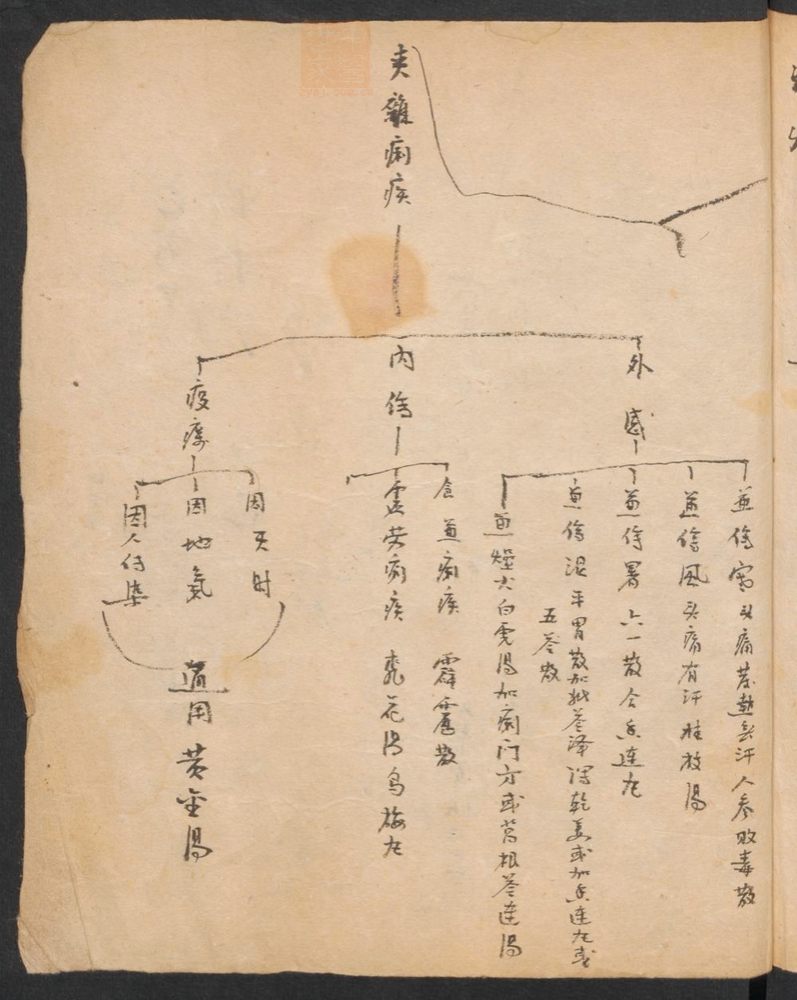 夹雜痢疾
外感
兼傷寒头痛发熱無汗人参败毒散
兼傷風头痛有汗桂枝湯
兼傷暑六一散合香連丸
兼傷湿平胃散加批苓泽瀉乾姜或加香連丸或
五苓散
兼燥火白虎湯加痢门方或葛根苓連湯
内傷
食兼痢疾 霹靂散
虚劳痢疾 桃花湯烏梅丸
疫癘
因天时
因地氣
因人传染
通用黄金湯